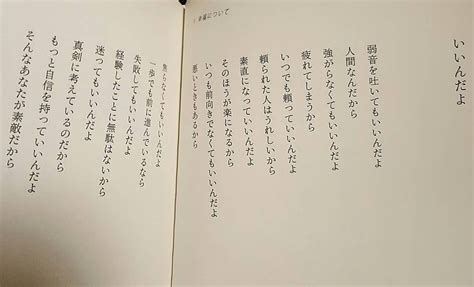 いいんだよ
弱音を吐いてもいいんだよ
人間なんだから
強がらなくてもいいんだよ
疲れてしまうから
いつでも頼っていいんだよ
頼られた人はうれしいから
素直になっていいんだよ
そのほうが楽になるから
いつも前向きでなくてもいいんだよ
悪いときもあるから
焦らなくてもいいんだよ
一歩でも前に進んでいるなら
失敗してもいいんだよ
経験したことに無駄はないから
迷ってもいいんだよ
真剣に考えているのだから
もっと自信を持っていいんだよ
そんなあなたが素敵だから
幸福について